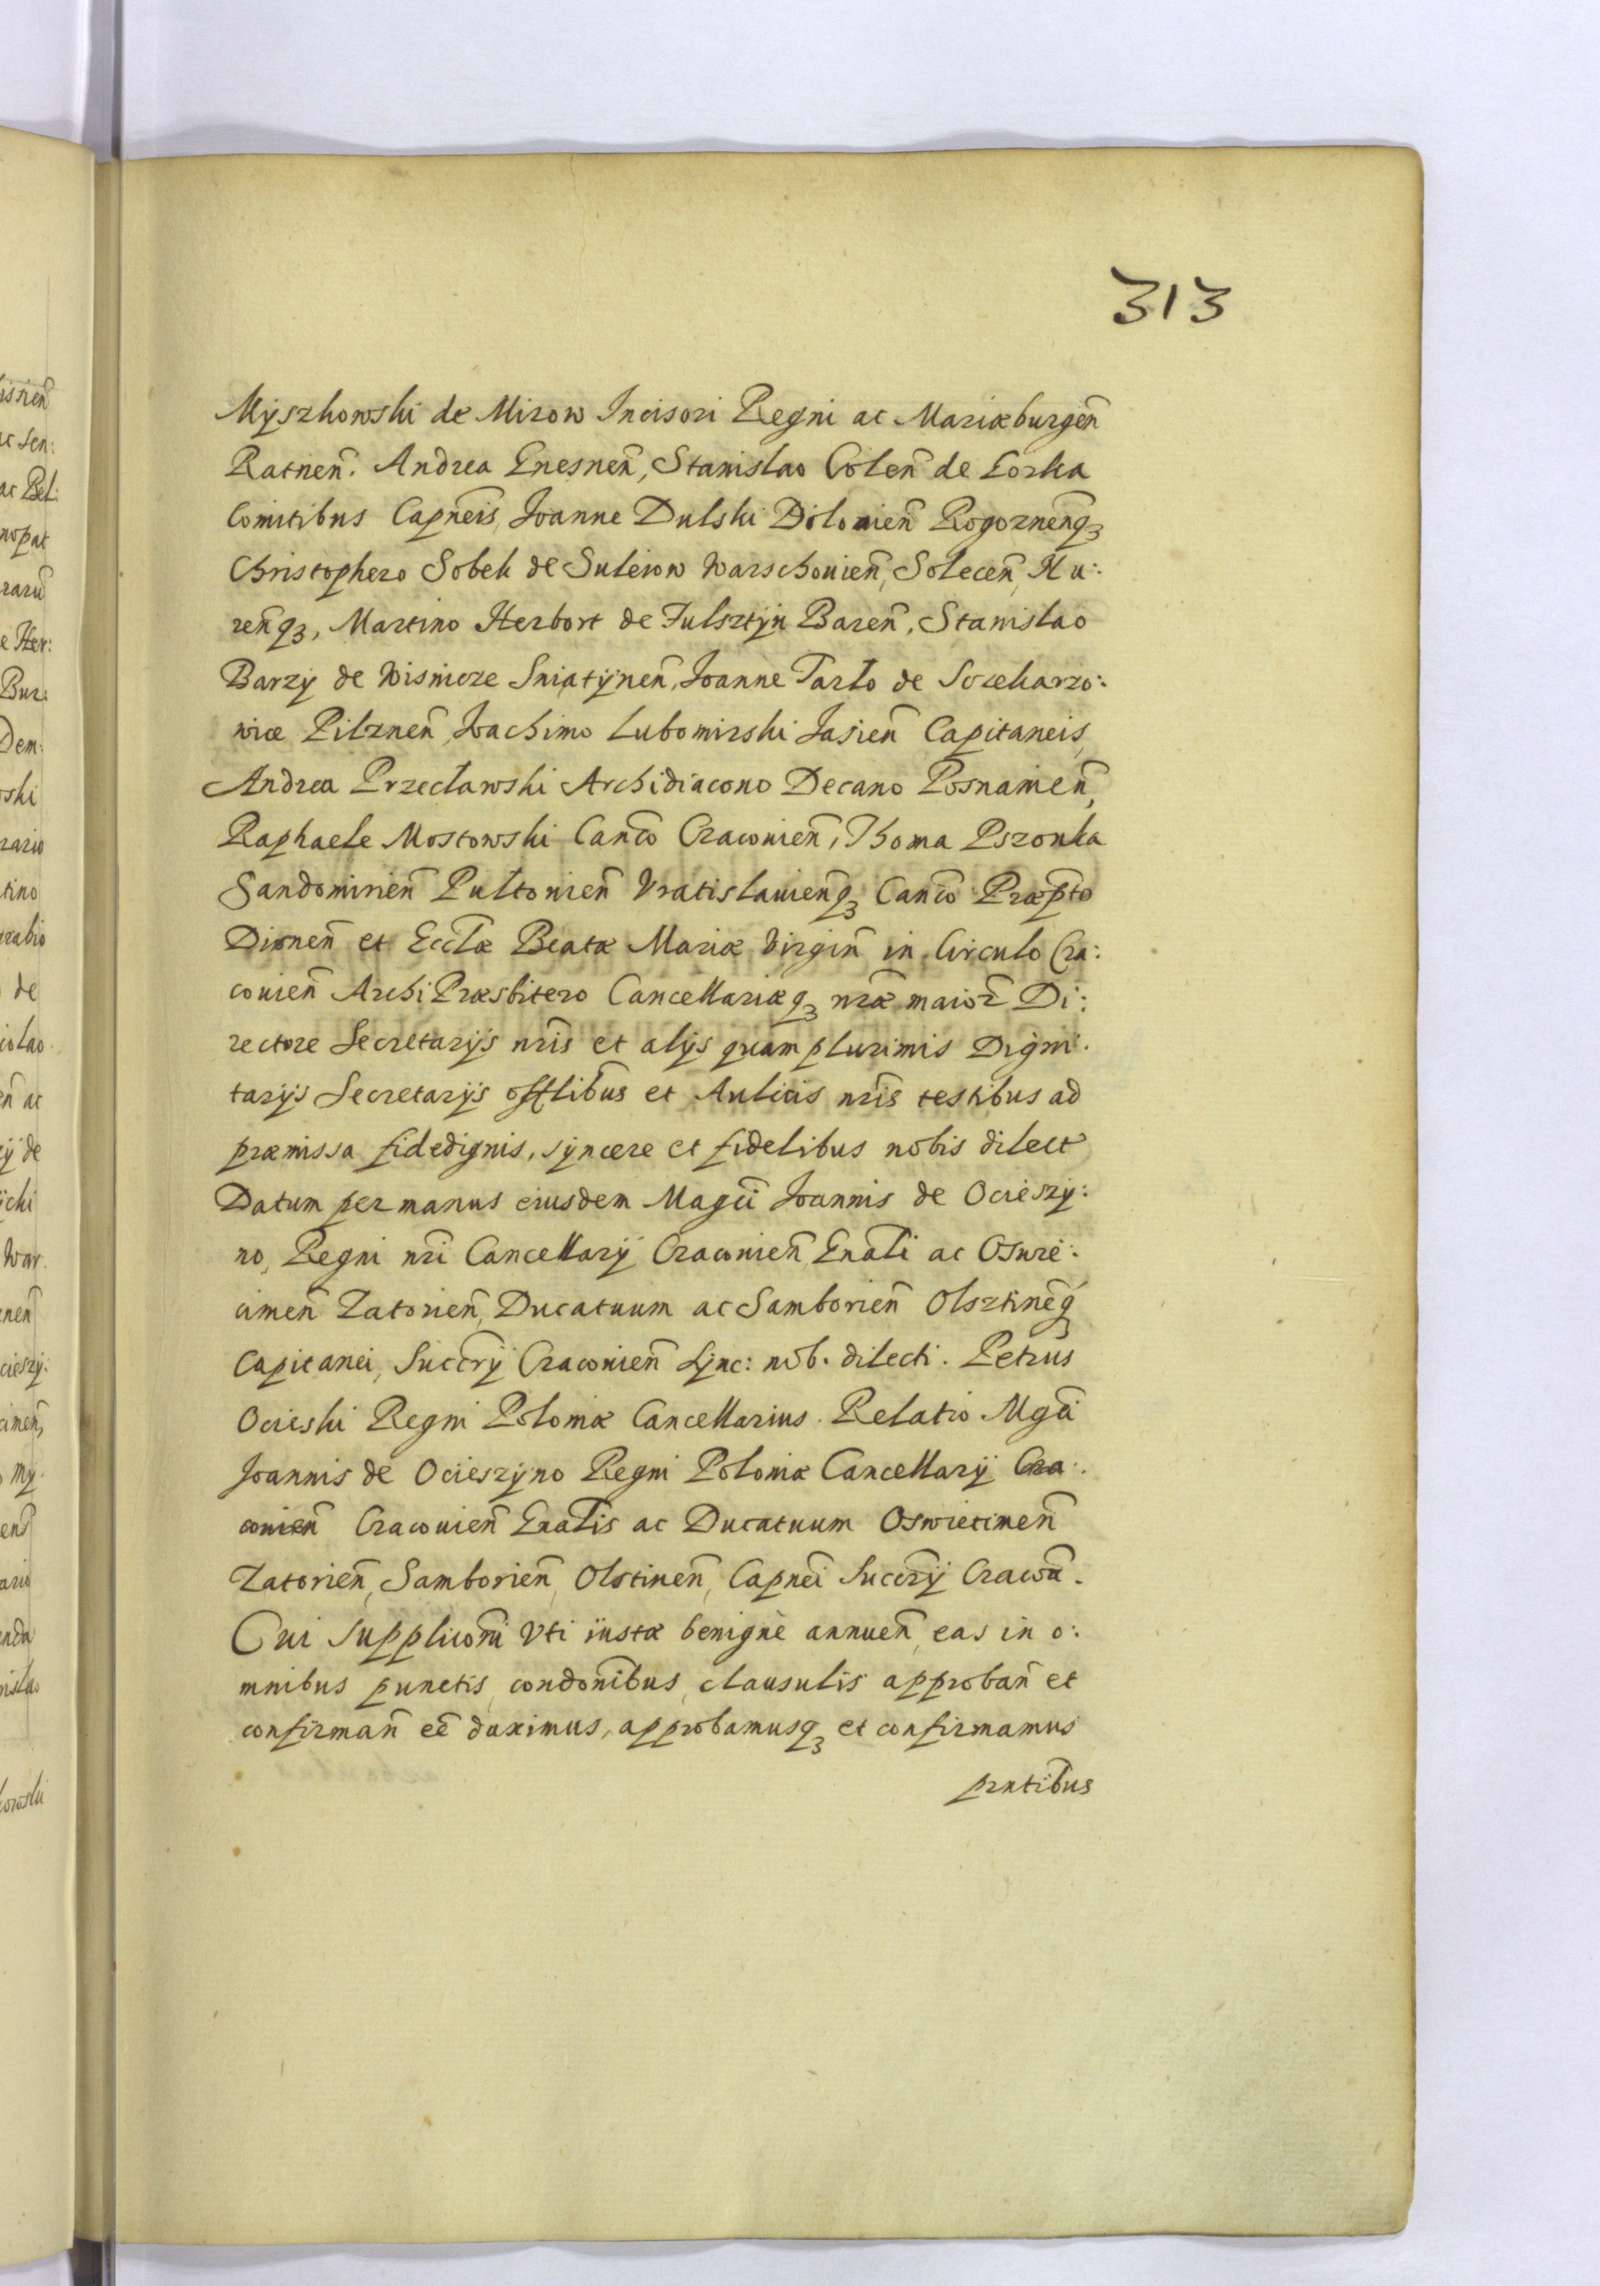 313
Myszkowski de Mirow Incisori Regni ac Mariæburgen̄
Ratnen̄. Andrea Gnesnen̄, Stanislao Colen̄ de Gorka
Comitibus Capn̄eis, Joanne Dulski Rogoznen̄q3
Christophero Sobek de Suleiow Warschouien̄, Solecen̄, Hu:
ren̄q3, Martino Herbort de Fulsztyn Baren̄, Stanislao
Barzy de Wisnicze Sniatynen̄, Joanne Tarło de Sczekarzo:
wice Pilznen̄, Joachimo Lubomirski Jasien̄ Capitaneis,
Andrea Przecławski Archidiacono Decano Posnanien̄,
Raphaele Mostowski Can̄co Cracouien̄, Thoma Pszonka
Sandomirien̄ Pultouien̄ Vratislauien̄q3 Can̄co Præp̄to
et Eccl̄æ Beatæ Mariæ Virgin̄ in Circulo Cra:
couien̄ ArchiPræsbitero Cancellariæq3 nr̄æ maior̄ Di:
rectore Secretarijs nr̄is et alijs quam plurimis Digni:
tarijs Secretarijs offl̄ibus et Aulicis nr̄is testibus ad
præmissa fidedignis, syncere et fidelibus nobis dilect
Datum per manus eiusdem Magc̄i Joannis de Ocieszy:
no, Regni nr̄i Cancellarij Cracouien̄ Gnal̄i ac Oswie:
cimen̄ Zatorien̄, Ducatuum ac Samborien̄ Olsztinen̄q
Capitanei, Succr̄ij Cracouien̄ Sync: nob̄. dilecti. Petrus
Ocieski Regni Poloniæ Cancellarius. Relatio Mgc̄i
Joannis de Ocieszyno Regni Poloniæ Cancellarij Cra:
couien̄ Cracouien̄ Gnal̄is ac Ducatuum Oswiecimen̄
Zatorien̄, Samborien̄, Olstinen̄, Capnēi Succr̄ij Cracou̅.
Cui supplicon̄i Vti iustæ benignè annuen̄, eas in o:
mnibus punctis, condon̄ibus, clausulis approban̄ et
confirman̄ eē duximus, approbamusq3 et confirmamus
prn̄tibus